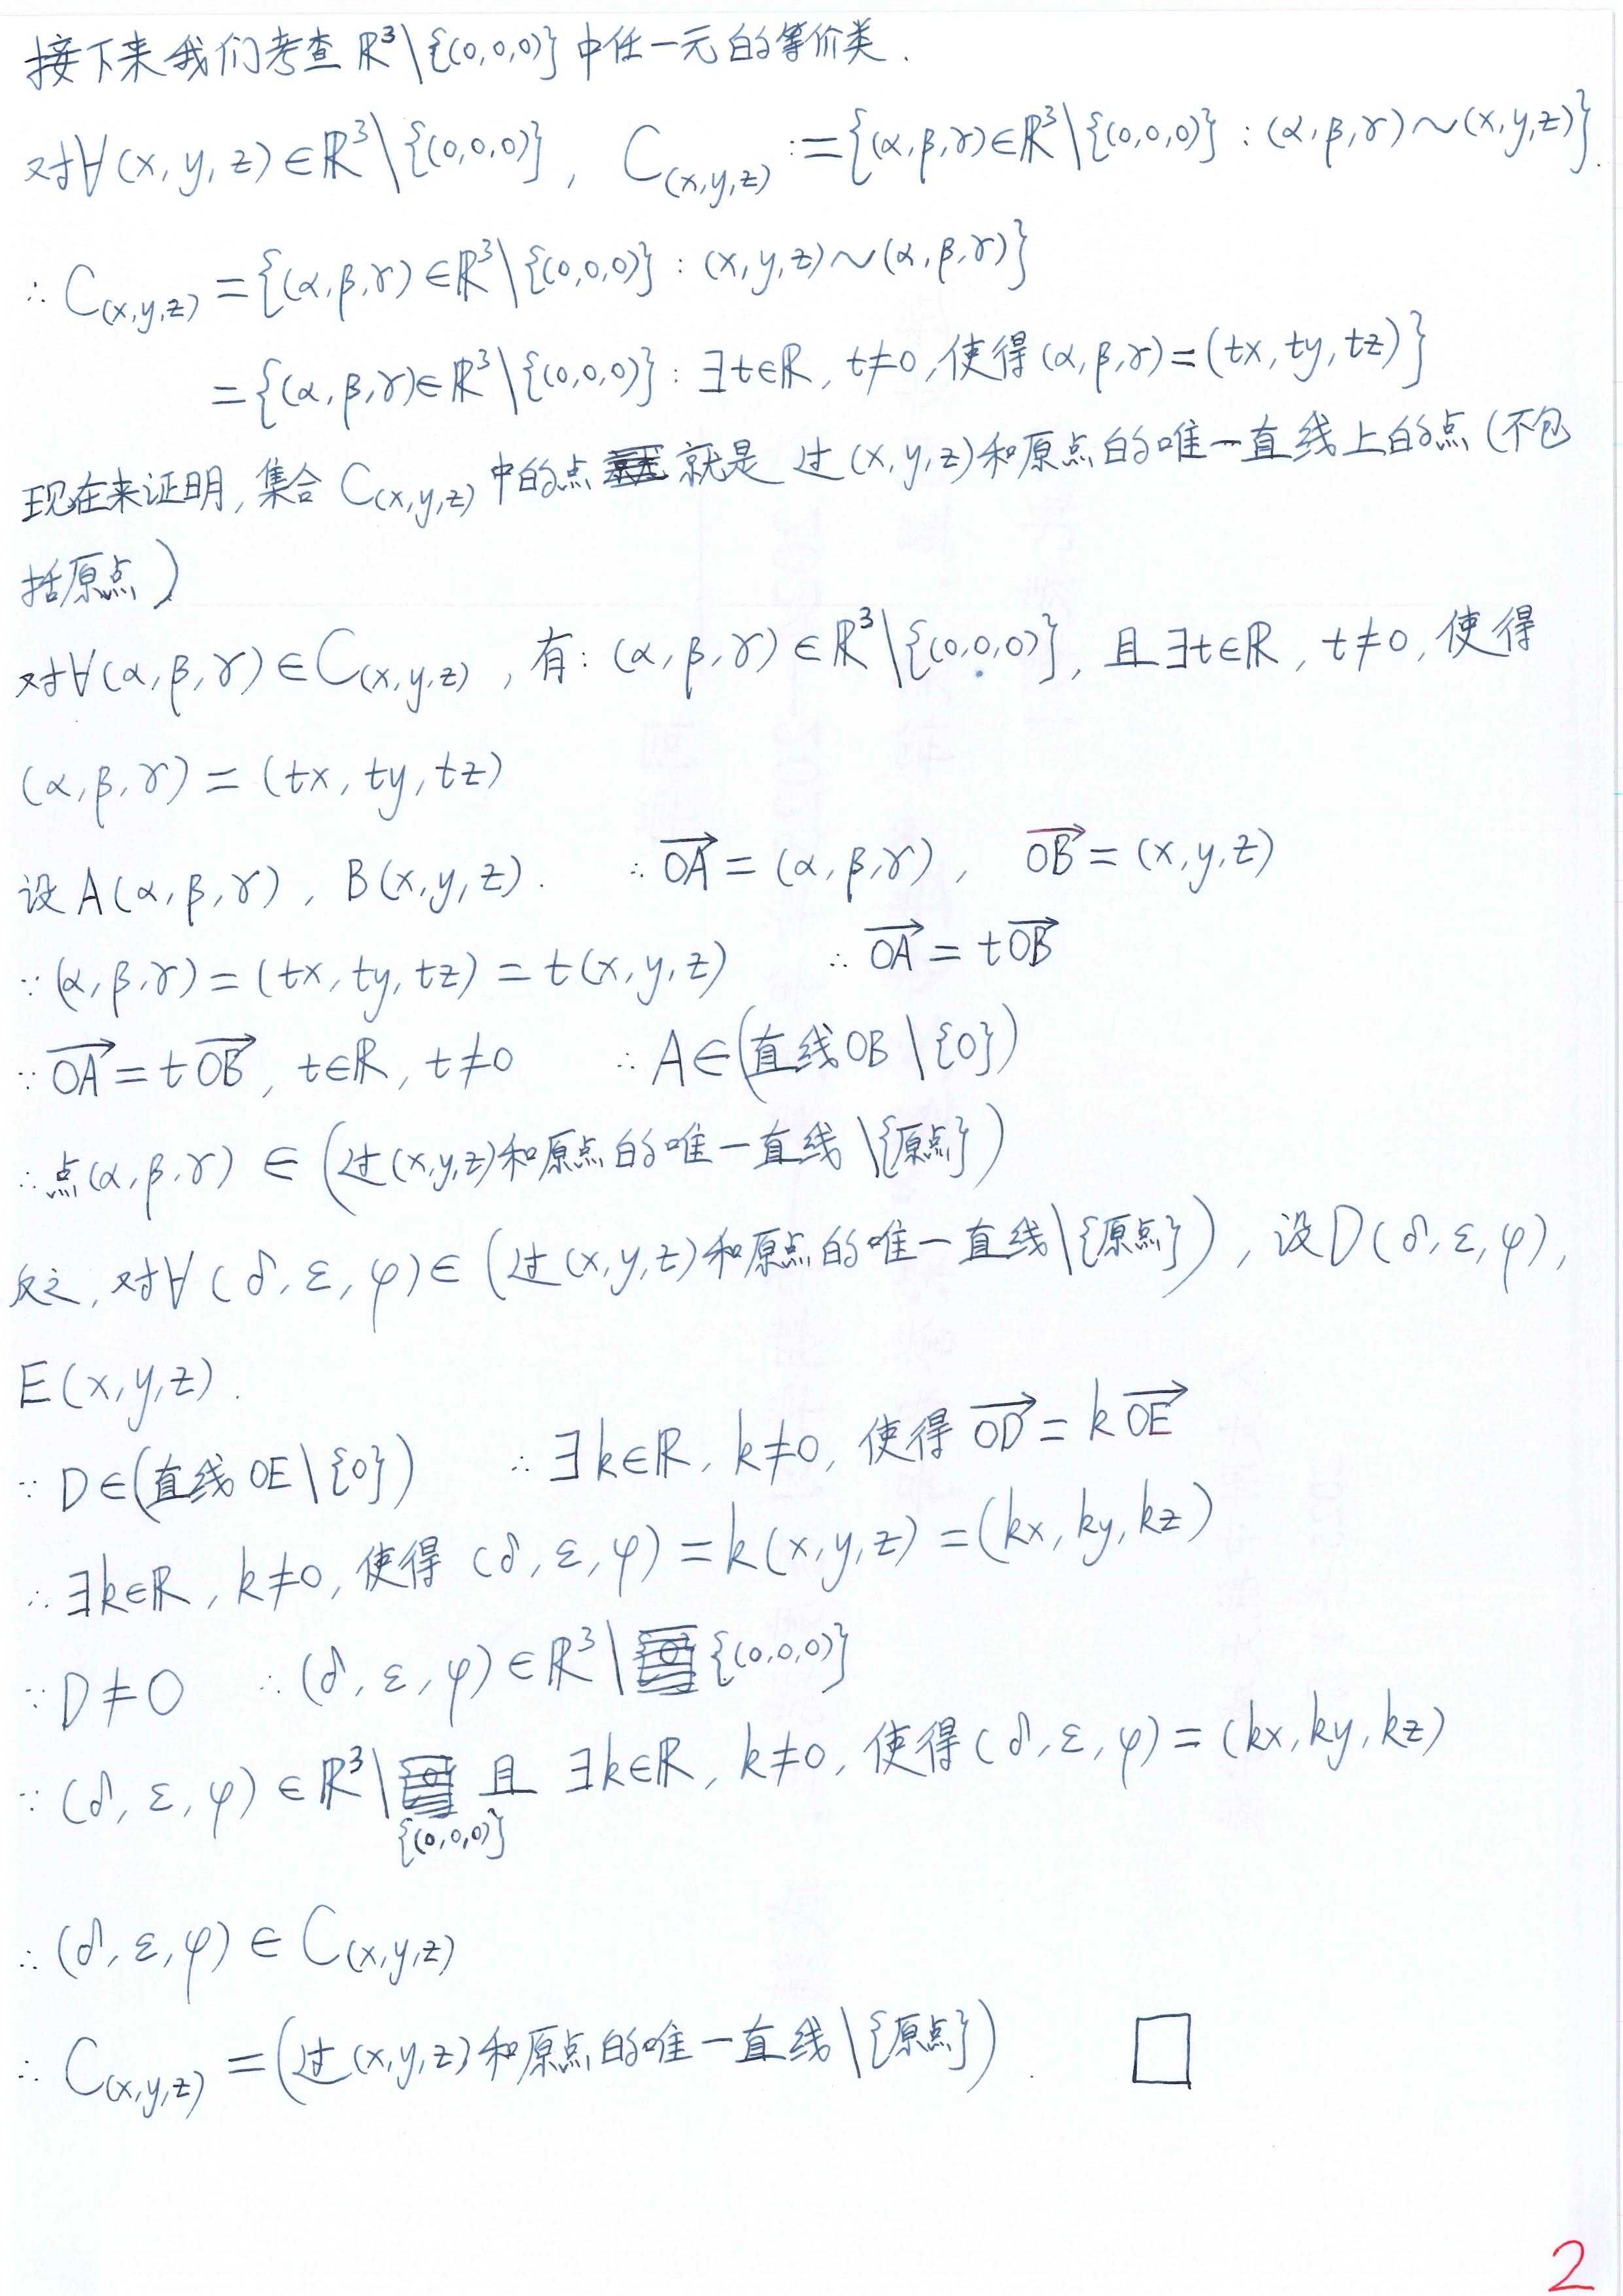 接下来我们考查 ℝ³\{(0,0,0)} 中任一元的等价类.
对∀(x, y, z)∈ℝ³\{(0,0,0)}, C₍ₓ,y,z₎ :={(α,β,γ)∈ℝ³\{(0,0,0)} : (α,β,γ)~(x,y,z)}.
∴ C₍ₓ,y,z₎ ={(α,β,γ)∈ℝ³\{(0,0,0)} : (x,y,z)~(α,β,γ)}
={(α,β,γ)∈ℝ³\{(0,0,0)} : ∃t∈ℝ, t≠0,使得(α,β,γ)=(tx,ty,tz)}
现在来证明,集合 C₍ₓ,y,z₎ 中的点就是 过(x,y,z)和原点的唯一直线上的点(不包
括原点)
对∀(α,β,γ)∈C₍ₓ,y,z₎, 有: (α,β,γ)∈ℝ³\{(0,0,0)}, 且∃t∈ℝ, t≠0, 使得
(α,β,γ)=(tx,ty,tz)
设A(α,β,γ), B(x,y,z). ∴ \overrightarrow{OA}=(α,β,γ), \overrightarrow{OB}=(x,y,z)
∵(α,β,γ)=(tx,ty,tz)=t(x,y,z) ∴ \overrightarrow{OA}=t\overrightarrow{OB}
∵ \overrightarrow{OA}=t\overrightarrow{OB}, t∈ℝ, t≠0 ∴ A∈(直线OB\{O})
∴点(α,β,γ)∈(过(x,y,z)和原点的唯一直线\{原点})
反之, 对∀(δ,ε,φ)∈(过(x,y,z)和原点的唯一直线\{原点}), 设D(δ,ε,φ),
E(x,y,z).
∵ D∈(直线OE\{O}) ∴∃k∈ℝ, k≠0, 使得 \overrightarrow{OD}=k\overrightarrow{OE}
∴∃k∈ℝ, k≠0,使得 (δ,ε,φ)=k(x,y,z)=(kx,ky,kz)
∵ D≠O ∴(δ,ε,φ)∈ℝ³\{(0,0,0)}
∵(δ,ε,φ)∈ℝ³\{(0,0,0)} 且 ∃k∈ℝ, k≠0, 使得(δ,ε,φ)=(kx,ky,kz)
∴(δ,ε,φ)∈C₍ₓ,y,z₎
∴ C₍ₓ,y,z₎=(过(x,y,z)和原点的唯一直线\{原点}). □
2